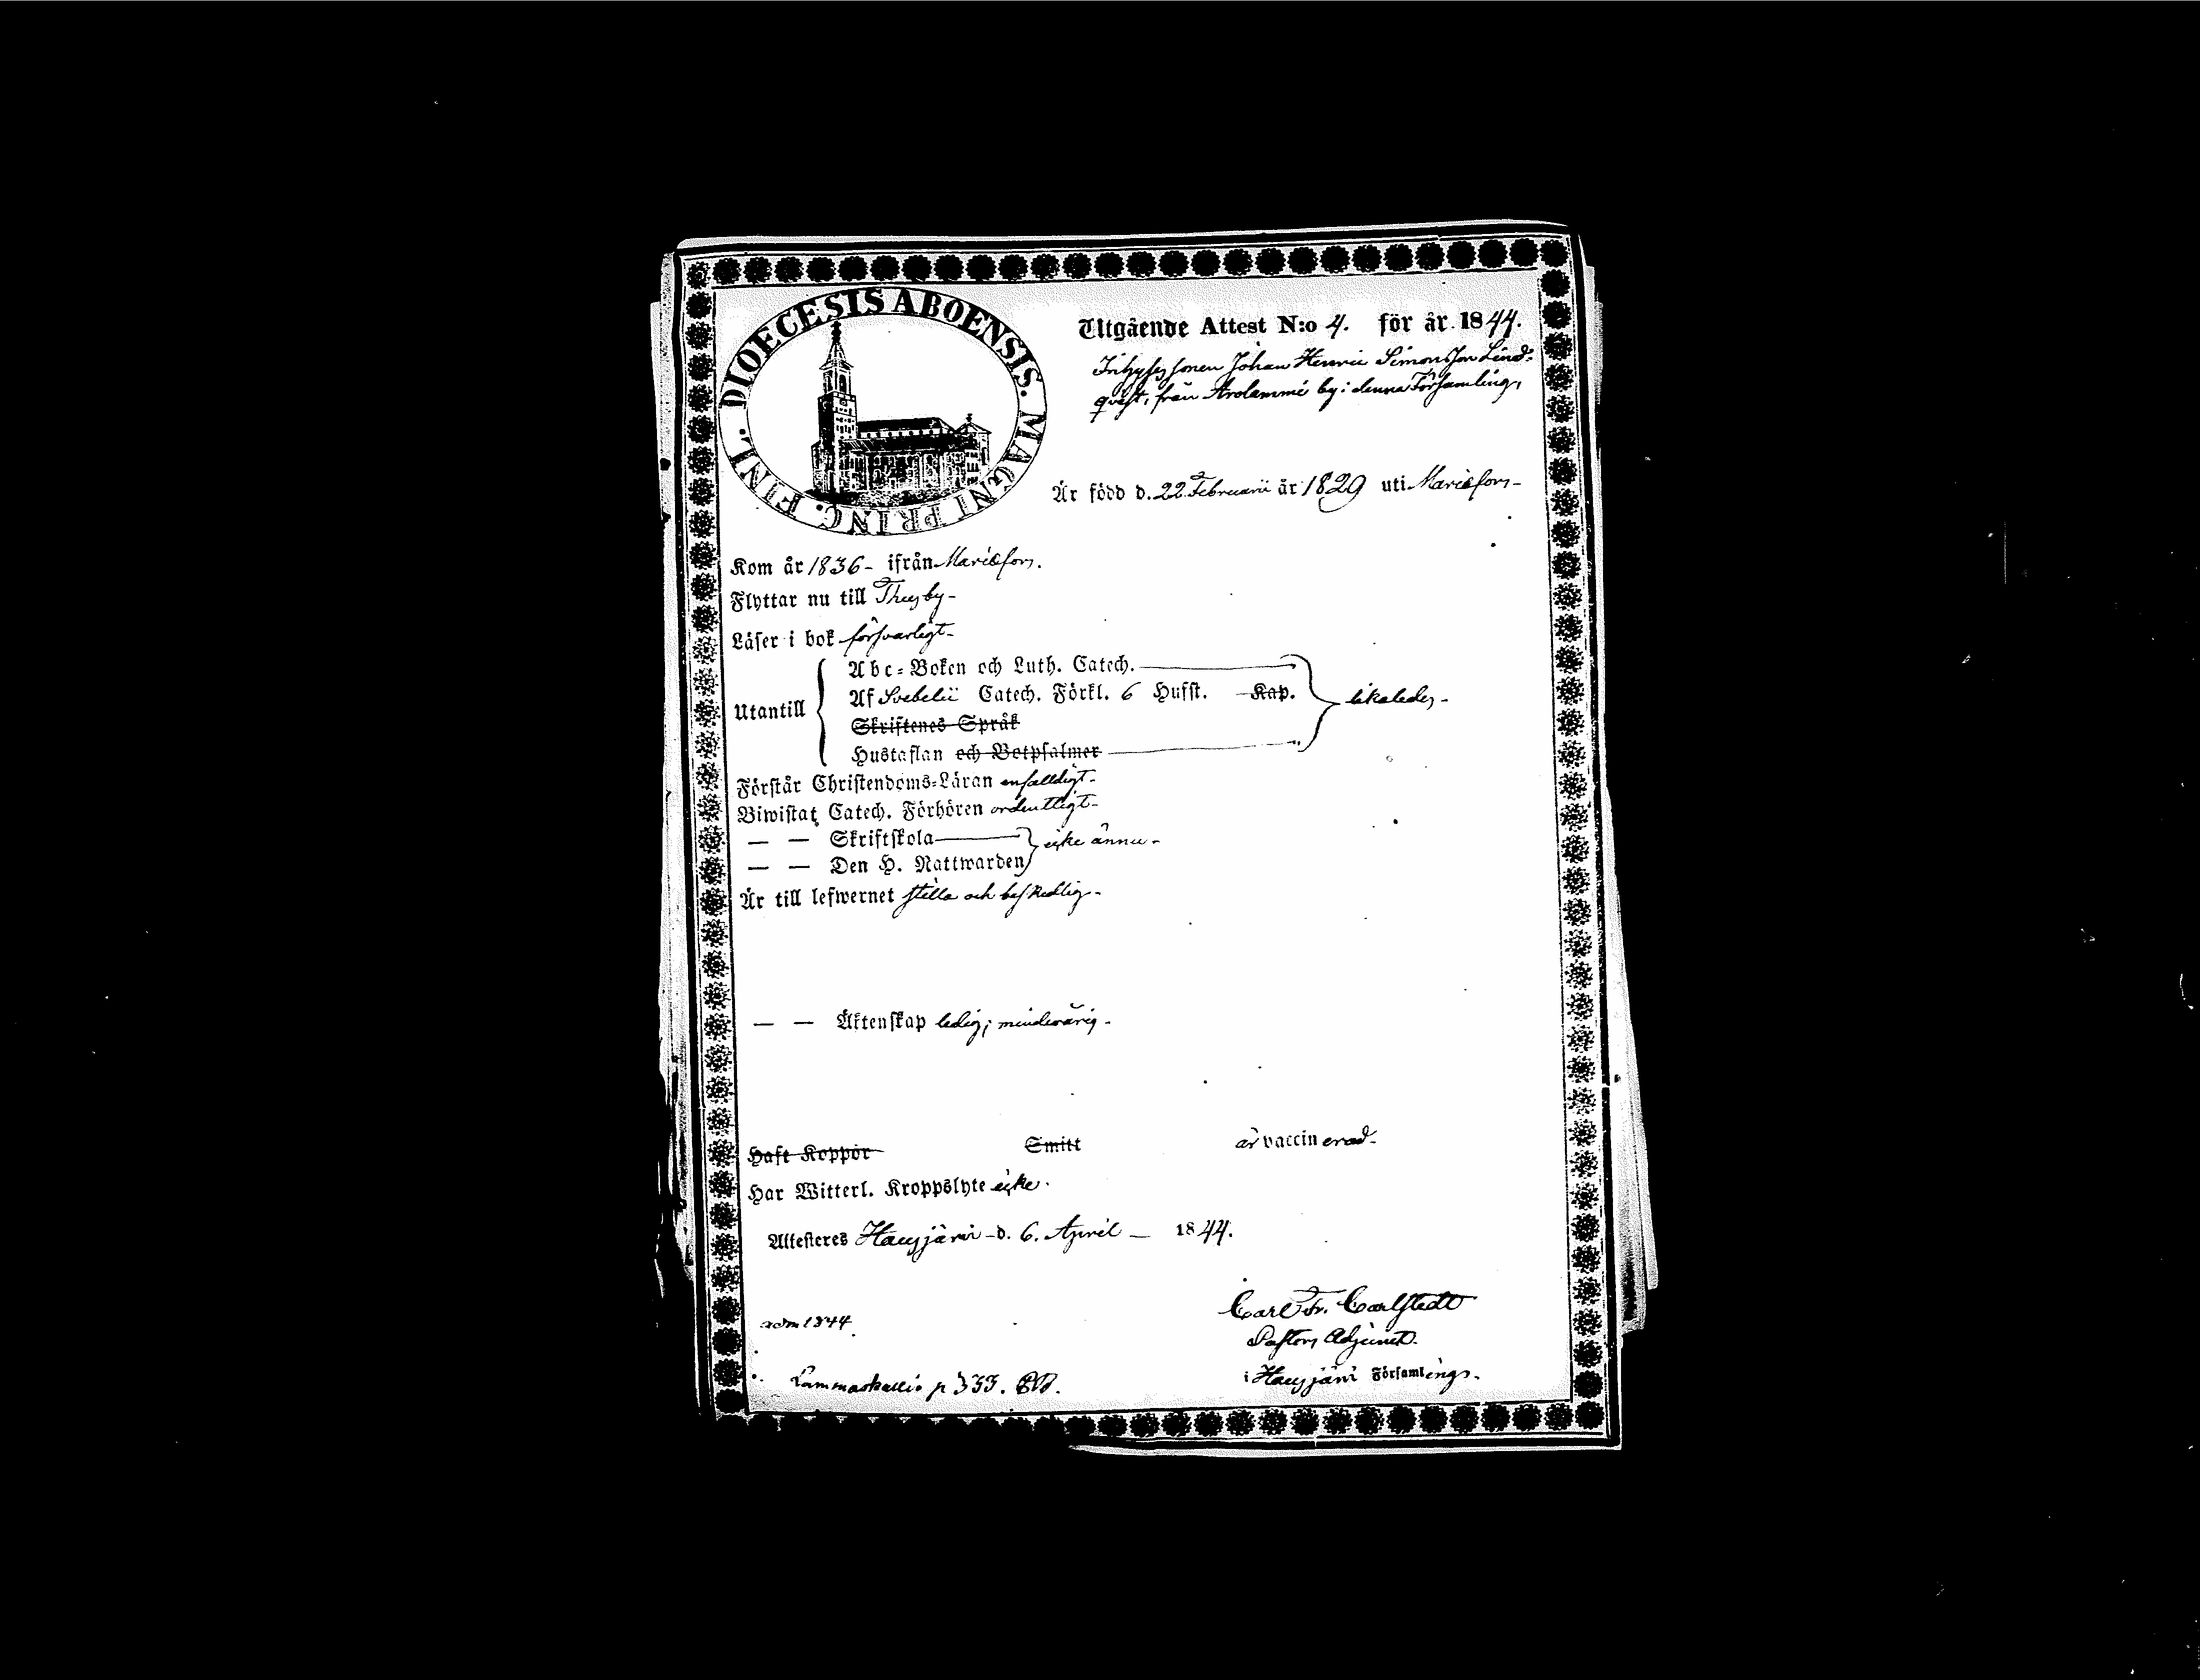 DIOECESIS ABOENSIS. MAGNI PRINC. FINL.
Utgående Attest N:o 4. för år 1844.
Inhyses sonen Johan Henric Simonsson Lind-
qvist, från Arolammi by i denna Församling,
Är född d. 22 Februarii år 1829 uti Mariæfors -
Kom år 1836 - ifrån Mariæfors.
Flyttar nu till Thusby -
Läser i bok försvarligt -
Utantill
Abc-Boken och Luth. Catech.
Af Svebelii Catech. Förkl. 6 Hufst. Kap.
likaledes -
Skriftenes Språk
Hustaflan och Botpsalmer
Förstår Christendoms-Läran enfalldigt -
Biwistat Catech. Förhören ordentligt -
— — Skriftskola
icke ännu -
— — Den H. Nattwarden
Är till lefwernet stilla och beskedlig -
— — Äktenskap ledig; minderårig -
Haft Koppor Smitt är vaccinerad -
Har Witterl. Kroppslyte icke.
Attesteres Hausjärvi - d. 6. April — 1844.
Carl Fr. Carlstedt
adm 1844.
Pastors Adjunct.
i Hausjärvi Församlings.
p 333.